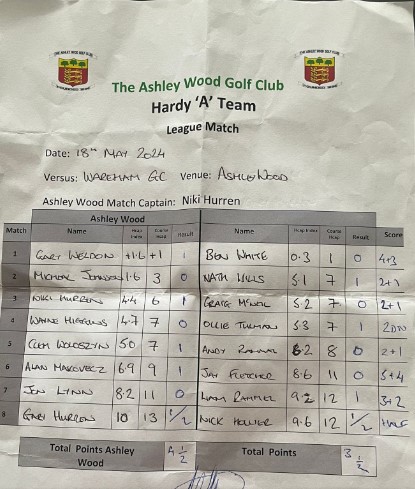 The Ashley Wood Golf Club
Hardy 'A' Team
League Match
Date: 18th MAY 2024
Versus: WAREHAM GC Venue: ASHLEY WOOD
Ashley Wood Match Captain: Niki Hurren
Ashley Wood
Match Name Hcap Index Course Hcap Result Name Hcap Index Course Hcap Result Score
1 GARY WELDON +1.6 +1 1 BEN WHITE 0.3 1 0 4+3
2 1.6 3 0 NATH HILLS 5.1 7 1 2+1
3 NIKI HURREN 4.4 6 1 CRAIG MCNEIL 5.2 7 0 2+1
4 WAYNE HIGGINS 4.7 7 0 OLLIE 5.3 7 1
5 CLEM WOLOSZYN 5.0 7 1 ANDY 6.2 8 0 2+1
6 ALAN 6.9 9 1 JAY FLETCHER 8.6 11 0 5+4
7 JEN LYNN 8.2 11 0 LIAM RAMMEL 9.2 12 1 3+2
8 GREG HURREN 10 13 1/2 NICK 9.6 12 1/2 HALF
Total Points Ashley Wood 4 1/2 Total Points 3 1/2